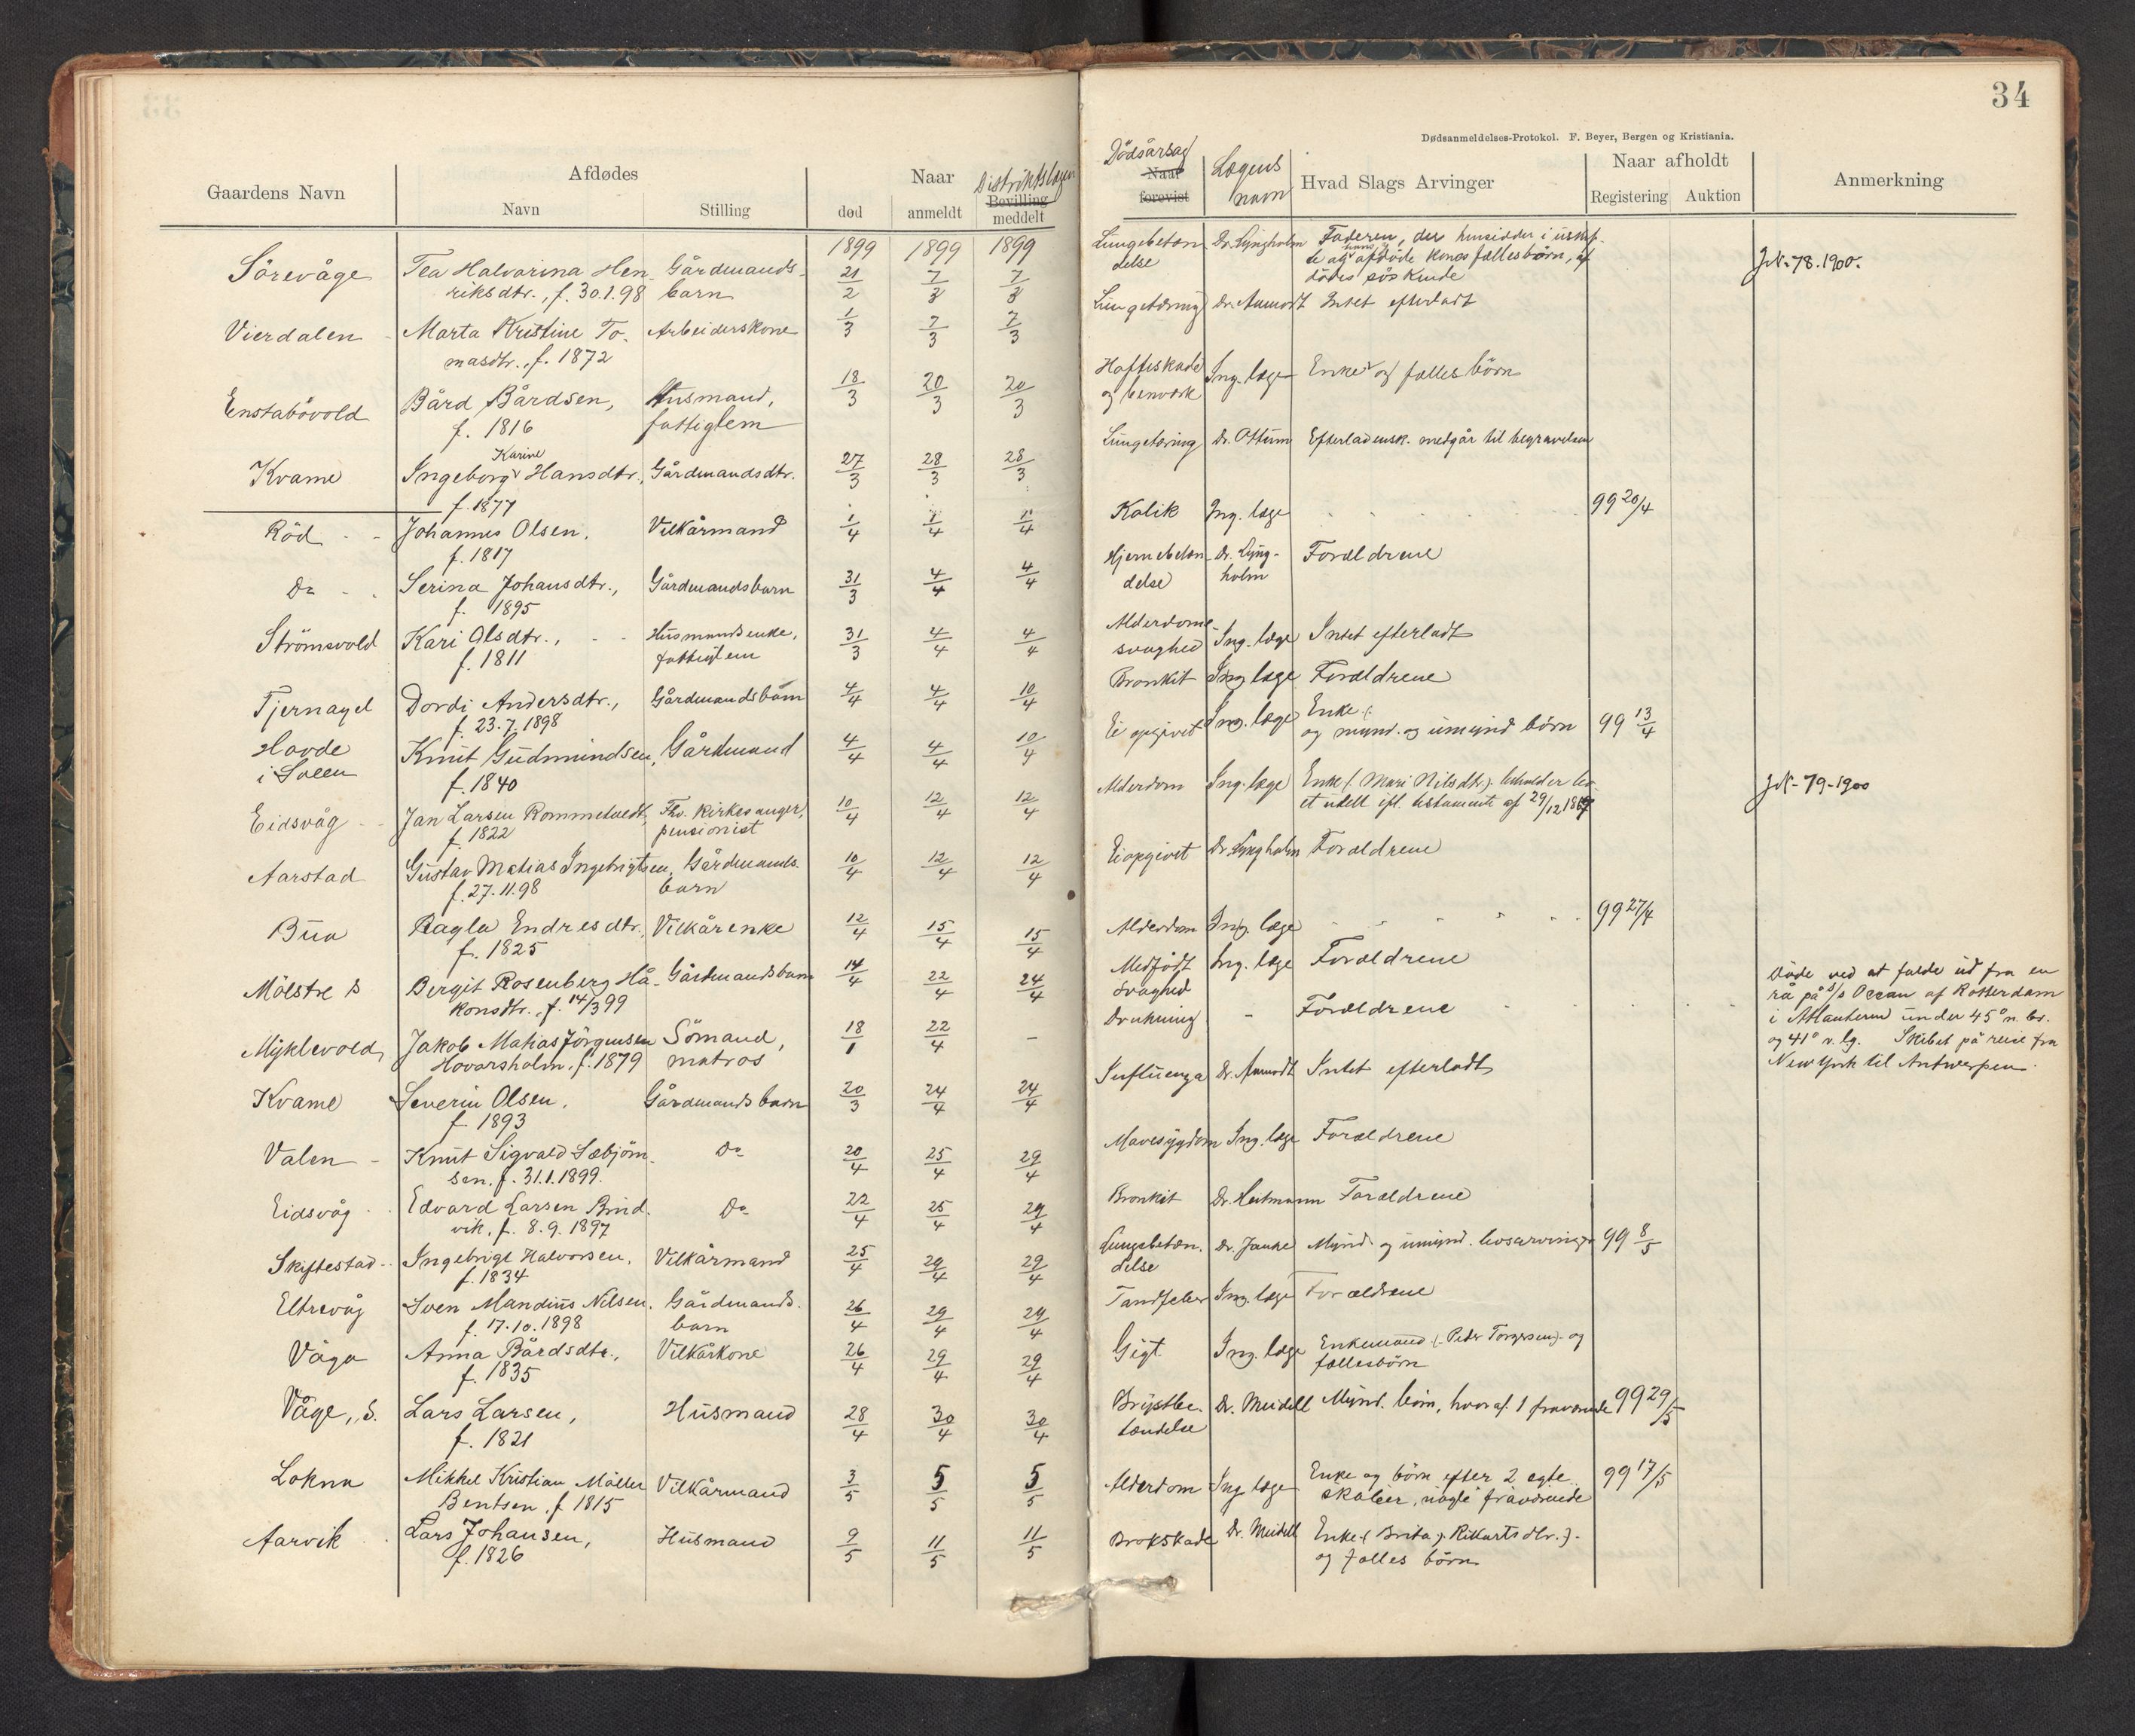 34
Dødsanmeldelses-Protokol. F. Beyer, Bergen og Kristiania.
Gaardens Navn
Afdødes
Navn
Stilling
Naar
død
anmeldt
Distriktslægen
Bevilling
meddelt
Dödsårsag
Naar
forevist
Lægens
navn
Hvad Slags Arvinger
Naar afholdt
Registering
Auktion
Anmerkning
1899 1899 1899
Sörevåge Tea Halvarina Hen- Gårdmands- 21/2 7/3 7/3
riksdtr., f. 30.1.98 barn
Vierdalen Marta Kristine To- Arbeiderskone 1/3 7/3 7/3
masdtr., f. 1872
Enstabövold Bård Bårdsen, Husmand, 18/3 20/3 20/3
f. 1816 fattiglem
Kvame Ingeborg Karine Hansdtr., Gårdmandsdtr. 27/3 28/3 28/3
f. 1877
Röd Johannes Olsen, Vilkårmand 1/4 1/4 11/4
f. 1817
Do Serina Johansdtr., Gårdmandsbarn 31/3 4/4 4/4
f. 1895
Strömsvold Kari Olsdtr., Husmandsenke, 31/3 4/4 4/4
f. 1811 fattiglem
Tjernagel Dordi Andersdtr., Gårdmandsbarn 4/4 4/4 10/4
f. 23.7.1898
Hovde Knut Gudmundsen, Gårdmand 4/4 4/4 10/4
i Sveen f. 1840
Eidsvåg Jan Larsen Rommetvedt, Fhv. kirkesanger, 10/4 12/4 12/4
f. 1822 pensionist
Aarstad Gustav Matias Ingebrigtsen, Gårdmands- 10/4 12/4 12/4
f. 27.11.98 barn
Bua Ragla Endresdtr. Vilkårenke 12/4 15/4 15/4
f. 1825
Mölstre Bergit Rosenberg Hå- Gårdmandsbarn 14/4 22/4 24/4
konsdtr., f. 14/3 99
Myklevold, Jakob Matias Jörgensen Sömand, 18/1 22/4 -
Hovarsholm, f. 1879 matros
Kvame Severin Olsen, Gårdmandsbarn 20/3 24/4 24/4
f. 1893
Valen Knut Sigvald Sæbjörn- Do 20/4 25/4 29/4
sen. f. 31.1.1899.
Eidsvåg Edvard Larsen Bind- Do 22/4 25/4 29/4
vik, f. 8.9.1897
Skiftestad Ingebrigt Halvorsen, Vilkårmand 25/4 29/4 29/4
f. 1834
Eltrevåg Sven Mandius Nilsen. Gårdmands- 26/4 29/4 29/4
f. 17.10.1898 barn
Våga Anna Bårdsdtr., Vilkårkone 26/4 29/4 29/4
f. 1835
Våge, S. Lars Larsen, Husmand 28/4 30/4 30/4
f. 1821
Lokna Mikkel Kristian Möller Vilkårmand 3/5 5/5 5/5
Bentsen, f 1815
Aarvik Lars Johansen, Husmand 9/5 11/5 11/5
f. 1826
Lungebetæn- Dr. Lyngholm Faderen, der hensidder i uskif-
delse te afdöde kones fællesbörn, af
dödes söskende
J.N. 78.1900.
Lungetæring Dr. Aamodt Intet efterladt
Hofteskade Ing. læge Enke og fælles börn
og benværk
Lungetæring Dr. Ottum Efterladensk. medgår til begravelsen
Kolik Ing. læge 99 20/4
Hjernebetæn- Dr. Lyng- Forældrene
delse holm
Alderdoms- Ing. læge Intet efterladt
svaghed
Bronkit Ing. læge Forældrene
Ei opgivet Ing. læge Enke
og mynd. og umynd börn 99 13/4
Alderdom Ing. læge Enke (Mari Nilsdtr.) beholder bo-
et udelt ifl. testamente af 29/12 1869
J.N. 79-1900
Ei opgivet Dr. Lyngholm Forældrene
Alderdom Ing. læge 99 27/4
Medfödt Ing. læge Forældrene
svaghed
Drukning - Forældrene
Döde ved at falde ud fra en
rå på s/s Ocean af Rotterdam
i Atlanteren under 45° n. br.
og 41° v. lg. Skibet på reise fra
New York til Antwerpen.
Influenza Dr. Aamodt Intet efterladt
Mavesygdom Ing. læge Forældrene
Bronkit Dr. Heitmann Forældrene
Lungebetæn- Dr. Janke Mynd. og umynd. livsarvinger 99 8/5
delse
Tandfeber Ing. læge Forældrene
Gigt Ing. læge Enkemand (Peder Torgersen) og
fællesbörn
Brystbe- Dr. Meidell Mynd. börn, hvoraf 1 fraværende 99 29/5
tændelse
Alderdom Ing læge Enke og börn efter 2 egte-
skaber, nogle fraværende 99 17/5
Brokskade Dr. Meidell Enke (Brita Rikartsdtr.)
og fælles börn